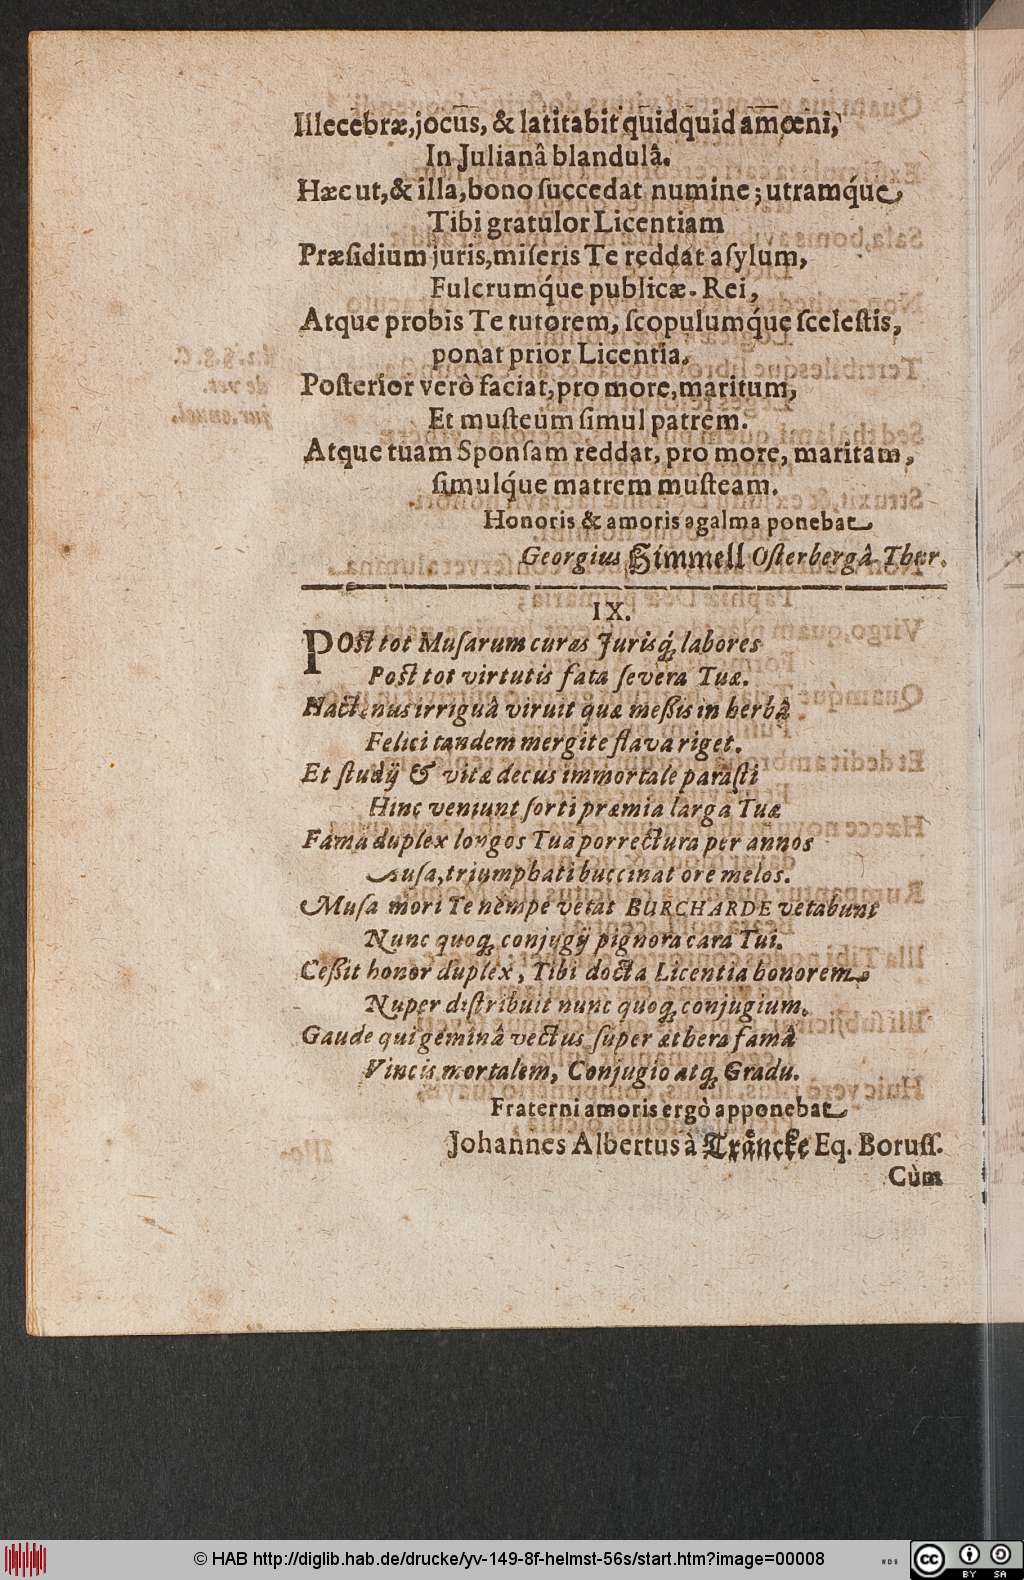 Illecebræ,jocus, & latitabit quidquid amœni,
In Julianâ blandulâ.
Hæc ut,& illa, bono ſuccedat numine; utramq́ue
Tibi gratulor Licentiam
Præſidium juris,miſeris Te reddat aſylum,
Fulcrumq́ue publicæ. Rei,
Atque probis Te tutorem, ſcopulumq́ue ſceleſtis,
ponat prior Licentia.
Poſterior verò faciat,pro more,maritum,
Et muſteum ſimul patrem.
Atque tuam Sponſam reddat, pro more, maritam,
ſimulq́ue matrem muſteam.
Honoris & amoris agalma ponebat
Georgius Himmell Oſterbergâ Thur.
IX.
POſt tot Muſarum curas Jurisq́; labores
Poſt tot virtutis fata ſevera Tuæ.
Hactenus irriguâ viruit quæ meßis in herbâ
Felici tandem mergite flava riget.
Et ſtudij & vitæ decus immortale paraſti
Hinc veniunt ſorti præmia larga Tuæ
Fama duplex longos Tua porrectura per annos
uſa,triumphati buccinat ore melos.
Muſa mori Te nempe vetat BURCHARDE vetabunt
Nunc quoq́; conjugij pignora cara Tui.
Ceßit honor duplex, Tibi docta Licentia honorem
Nuper diſtribuit nunc quoq́; conjugium.
Gaude qui geminâ vectus ſuper æthera famâ
Vincis mortalem, Conjugio atq́; Gradu.
Fraterni amoris ergò apponebat
Johannes Albertus à Trancke Eq. Boruſſ.
Cùm
© HAB http://diglib.hab.de/drucke/yv-149-8f-helmst-56s/start.htm?image=00008
WDB
cc BY SA